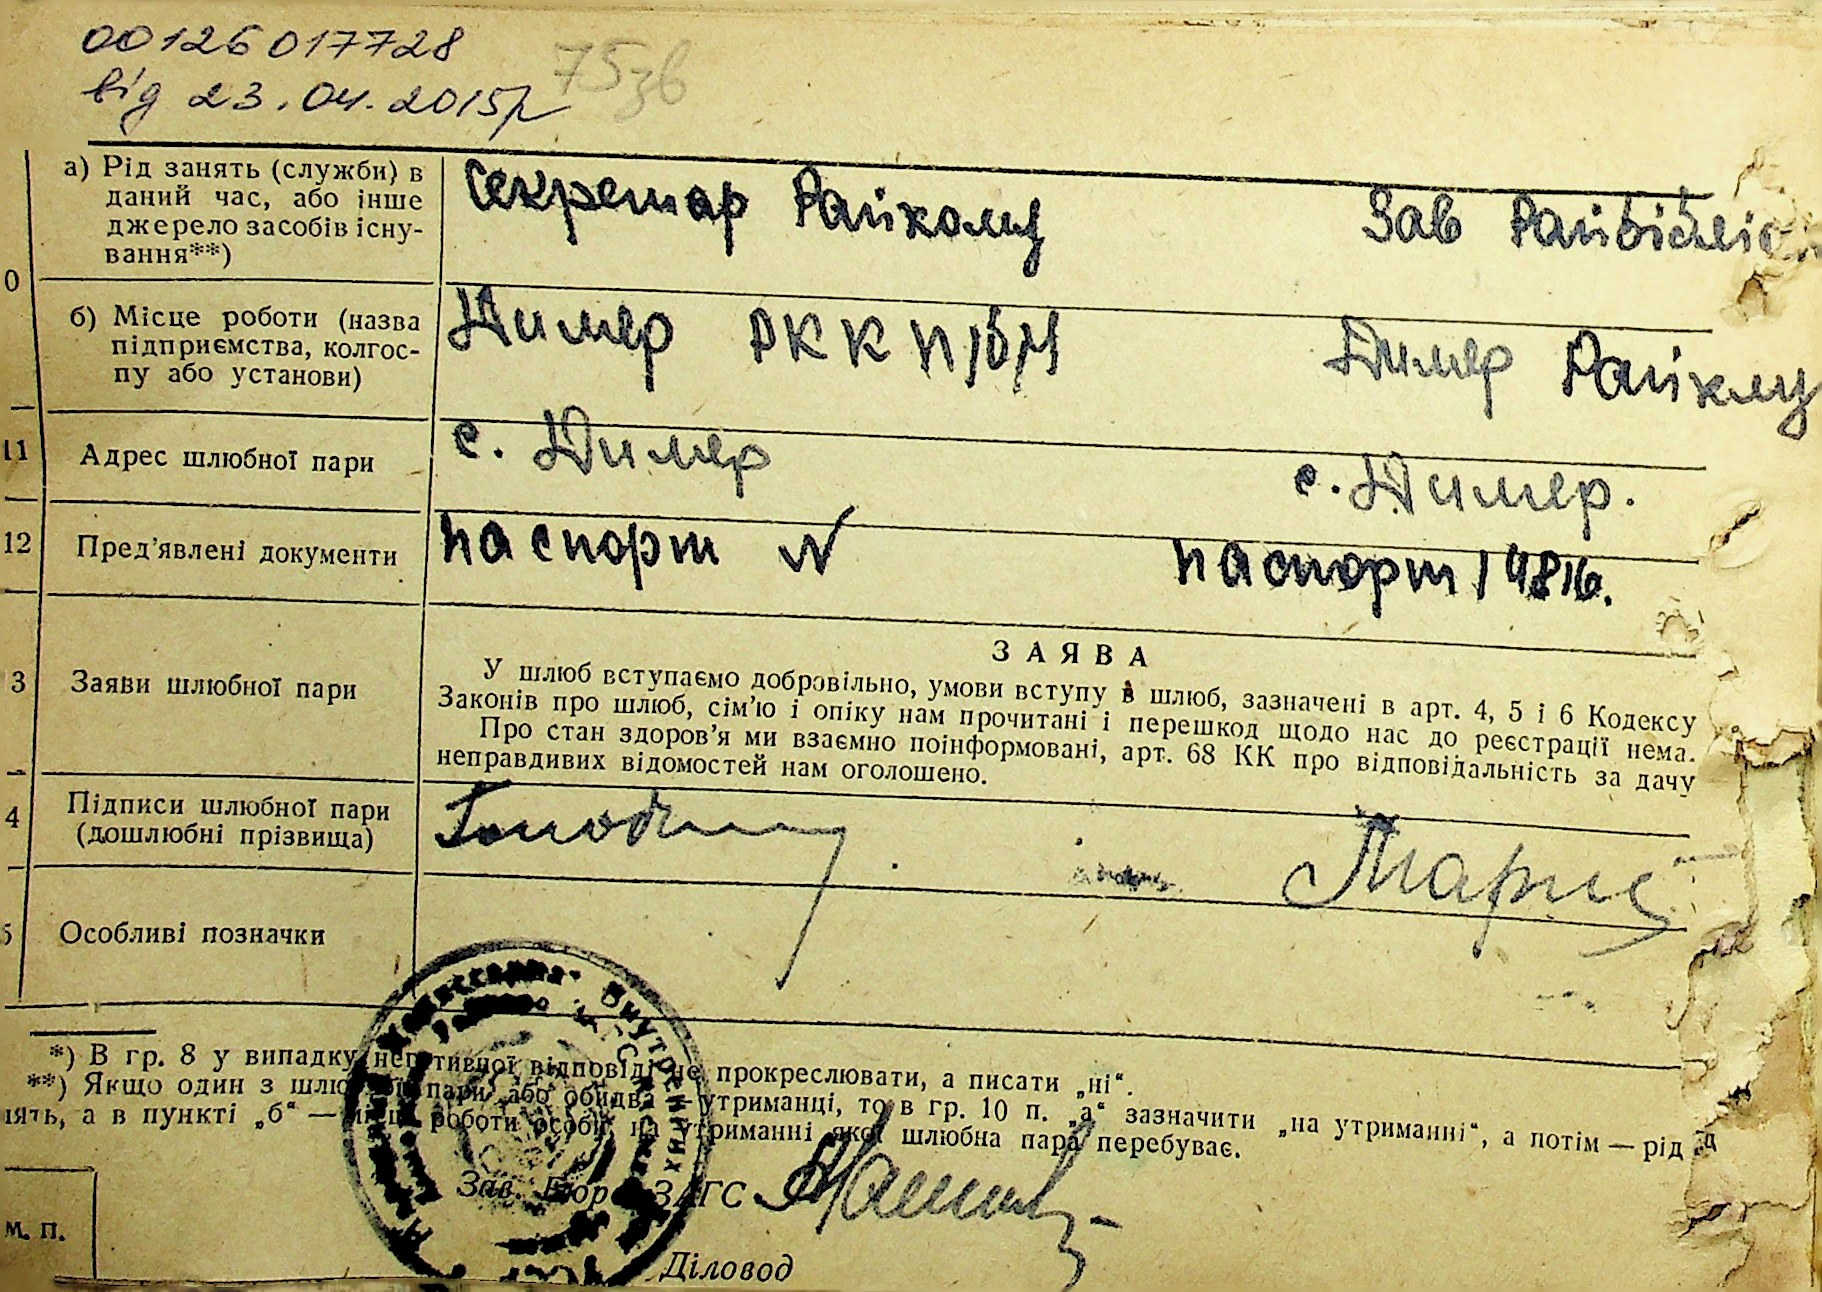 00126017728
від 23.04.2015р
75зв
а) Рід занять (служби) в
даний час, або інше
джерело засобів існу-
вання**)
Секретар Райкому
Зав Райбібліо
0
б) Місце роботи (назва
підприємства, колгос-
пу або установи)
Димер РК КП/б/У
Димер Райкому
11
Адрес шлюбної пари
с. Димер
с. Димер.
12
Пред'явлені документи
паспорт N
паспорт
3
Заяви шлюбної пари
ЗАЯВА
У шлюб вступаємо добровільно, умови вступу в шлюб, зазначені в арт. 4, 5 і 6 Кодексу
Законів про шлюб, сім'ю і опіку нам прочитані і перешкод щодо нас до реєстрації нема.
Про стан здоров'я ми взаємно поінформовані, арт. 68 КК про відповідальність за дачу
неправдивих відомостей нам оголошено.
4
Підписи шлюбної пари
(дошлюбні прізвища)
5
Особливі позначки
*) В гр. 8 у випадку негативної відповіді не прокреслювати, а писати „ні“.
**) Якщо один з шлюбної пари або обидва — утриманці, то в гр. 10 п. „а“ зазначити „на утриманні“, а потім — рід
нять, а в пункті „б“ — місце роботи особи, на утриманні якої шлюбна пара перебуває.
Зав. Бюро ЗАГС
м. п.
Діловод